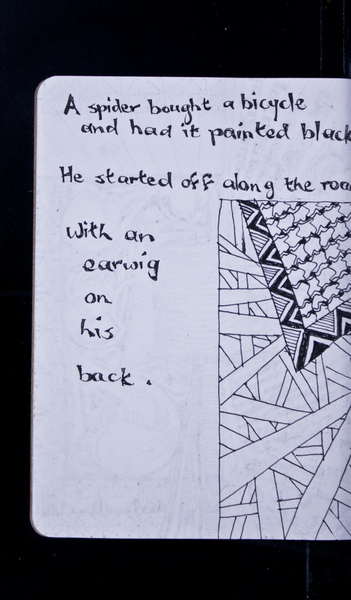 A spider bought a bicycle
and had it painted black
He started off along the road
With an
earwig
on
his
back.